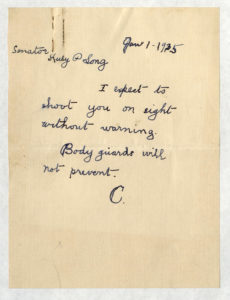 Jan 1-1935
Senator
Huey P Long
I expect to
shoot you on sight
without warning.
Body guards will
not prevent.
C.